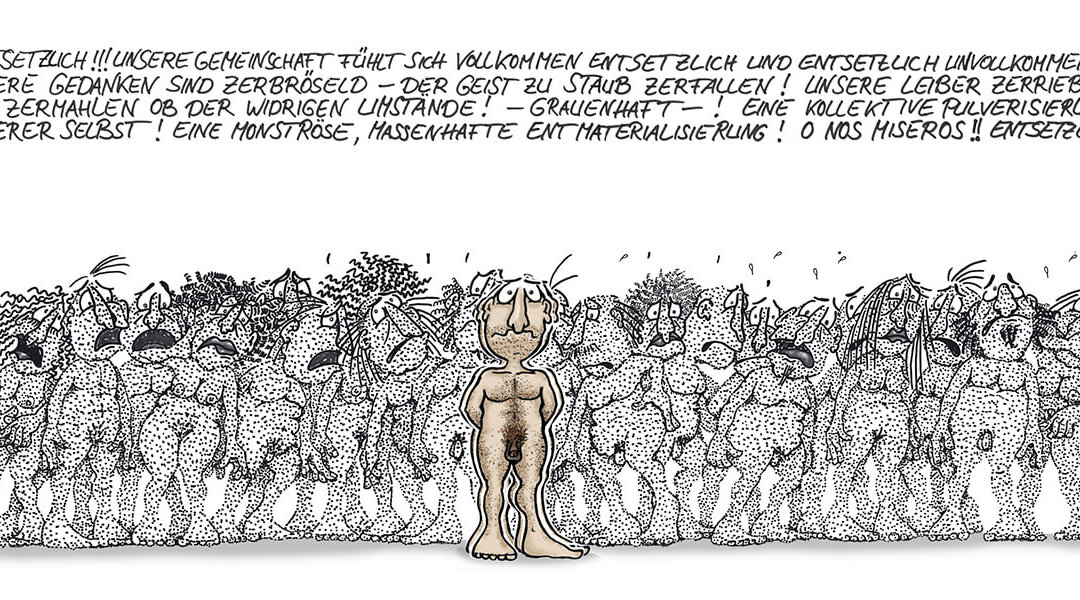 TSETZLICH!!! UNSERE GEMEINSCHAFT FÜHLT SICH VOLLKOMMEN ENTSETZLICH UND ENTSETZLICH UNVOLLKOMMEN
ERE GEDANKEN SIND ZERBRÖSELD – DER GEIST ZU STAUB ZERFALLEN! UNSERE LEIBER ZERRIEB
ZERMAHLEN OB DER WIDRIGEN UMSTÄNDE! – GRAUENHAFT – ! EINE KOLLEKTIVE PULVERISIERU
ERER SELBST! EINE MONSTRÖSE, MASSENHAFTE ENTMATERIALISIERUNG! O NOS MISEROS!! ENTSETZL